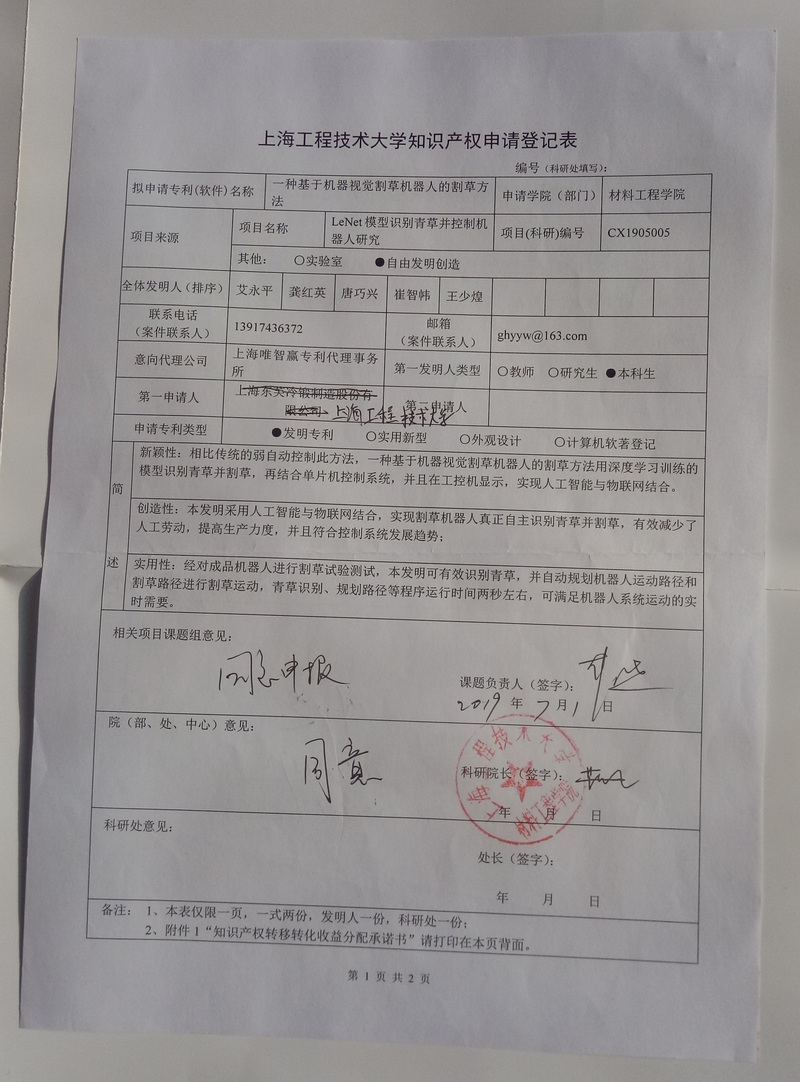 上海工程技术大学知识产权申请登记表
编号（科研处填写）：
拟申请专利(软件)名称 一种基于机器视觉割草机器人的割草方法 申请学院（部门） 材料工程学院
项目来源 项目名称 LeNet 模型识别青草并控制机器人研究 项目(科研)编号 CX1905005
其他： ○实验室 ●自由发明创造
全体发明人（排序） 艾永平 龚红英 唐巧兴 崔智韩 王少煌
联系电话（案件联系人） 13917436372 邮箱（案件联系人） ghyyw@163.com
意向代理公司 上海唯智赢专利代理事务所 第一发明人类型 ○教师 ○研究生 ●本科生
第一申请人 上海东芙冷锻制造股份有限公司 上海工程技术大学 第二申请人
申请专利类型 ●发明专利 ○实用新型 ○外观设计 ○计算机软著登记
简述
新颖性：相比传统的弱自动控制此方法，一种基于机器视觉割草机器人的割草方法用深度学习训练的
模型识别青草并割草，再结合单片机控制系统，并且在工控机显示，实现人工智能与物联网结合。
创造性：本发明采用人工智能与物联网结合，实现割草机器人真正自主识别青草并割草，有效减少了
人工劳动，提高生产力度，并且符合控制系统发展趋势；
实用性：经对成品机器人进行割草试验测试，本发明可有效识别青草，并自动规划机器人运动路径和
割草路径进行割草运动，青草识别、规划路径等程序运行时间两秒左右，可满足机器人系统运动的实
时需要。
相关项目课题组意见：
同意申报
课题负责人（签字）：
2019 年 7 月 1 日
院（部、处、中心）意见：
同意
科研院长（签字）：
年 月 日
上海工程技术大学
材料工程学院
科研处意见：
处长（签字）：
年 月 日
备注： 1、本表仅限一页，一式两份，发明人一份，科研处一份；
2、附件 1“知识产权转移转化收益分配承诺书”请打印在本页背面。
第 1 页 共 2 页